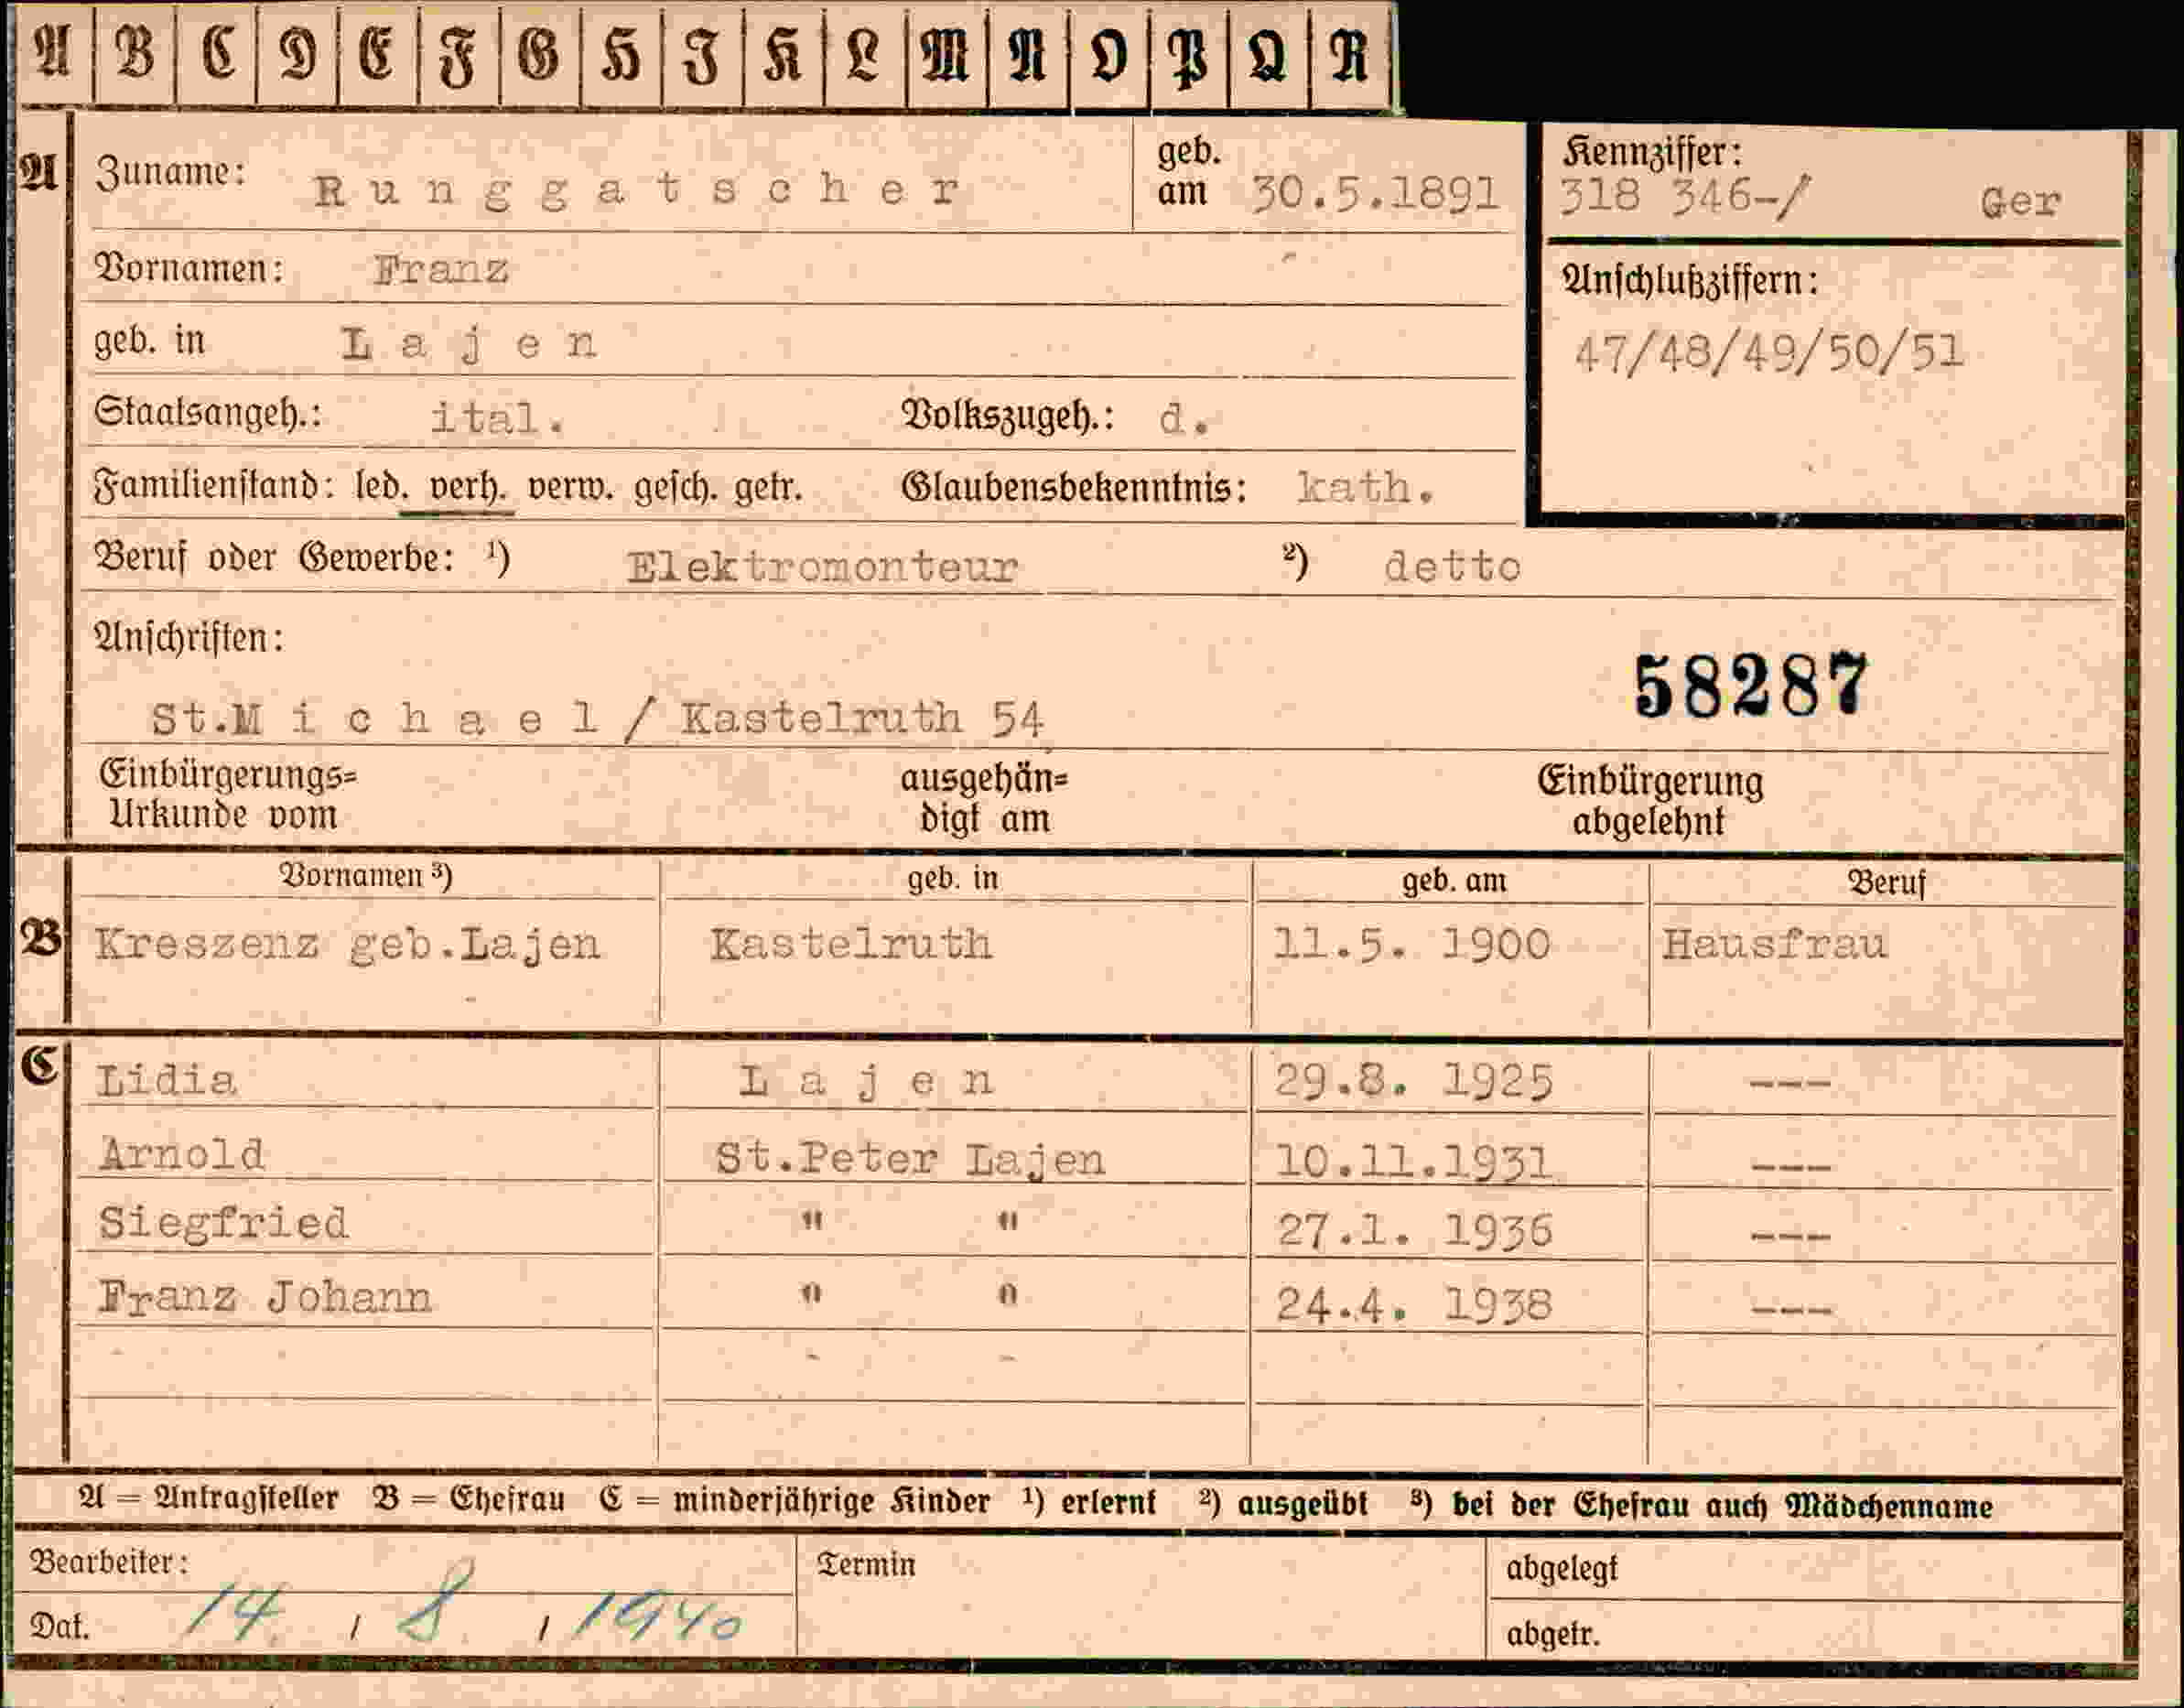 A B C D E F G H I K L M N O P Q R
A Zuname: Runggatscher geb. am 30.5.1891 Kennziffer: 318 346-/ Ger
Vornamen: Franz
Anschlußziffern:
geb. in Lajen 47/48/49/50/51
Staatsangeh.: ital. Volkszugeh.: d.
Familienstand: led. verh. verw. gesch. getr. Glaubensbekenntnis: kath.
Beruf oder Gewerbe: ¹) Elektromonteur ²) detto
Anschriften:
58287
St.Michael / Kastelruth 54
Einbürgerungs= ausgehän= Einbürgerung
Urkunde vom digt am abgelehnt
Vornamen ³) geb. in geb. am Beruf
B Kreszenz geb.Lajen Kastelruth 11.5. 1900 Hausfrau
C Lidia Lajen 29.8. 1925 ---
Arnold St.Peter Lajen 10.11.1931 ---
Siegfried " " 27.1. 1936 ---
Franz Johann " " 24.4. 1938 ---
A = Antragsteller B = Ehefrau C = minderjährige Kinder ¹) erlernt ²) ausgeübt ³) bei der Ehefrau auch Mädchenname
Bearbeiter: Termin abgelegt
Dat. 14 / 8 / 1940 abgetr.